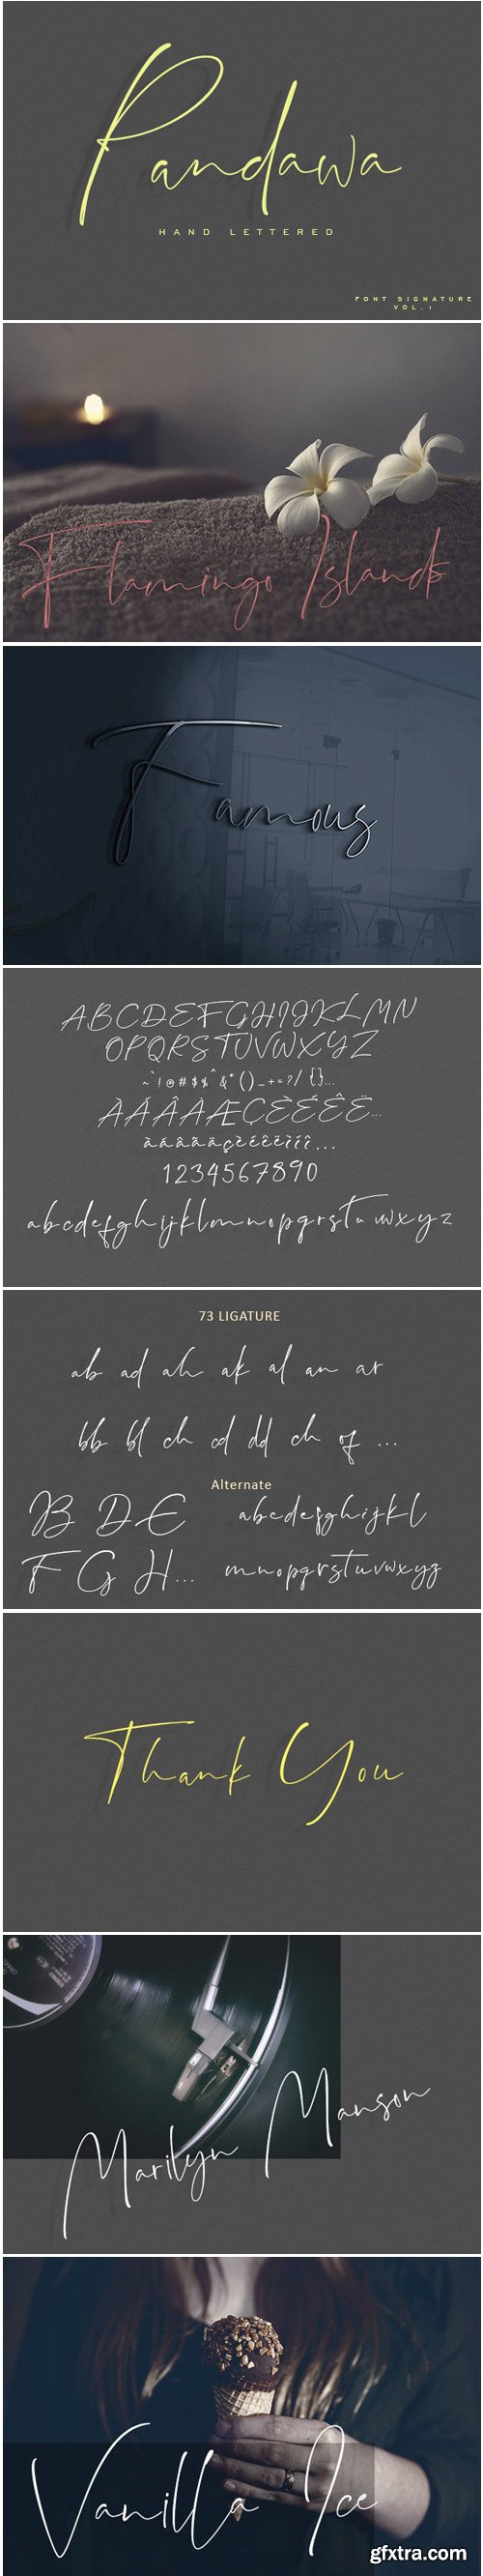 Pandawa
HAND LETTERED
FONT SIGNATURE
VOL.1
Flamingo Islands
Famous
ABCDEFGHIJKLMN
OPQRSTUVWXYZ
~`!@#$%^&*()_-+=?/{}...
ÀÁÂÃÄÆÇÈÉÊË...
àáâãäçèéêëìíî...
1234567890
abcdefghijklmnopqrstuvwxyz
73 LIGATURE
ab ad ah ak al an ar
bb bl ch cd dd ch of ...
Alternate
B D E
abcdefghijkl
F G H...
mnopqrstuvwxyz
Thank You
Marilyn Manson
Vanilla Ice
gfxtra.com